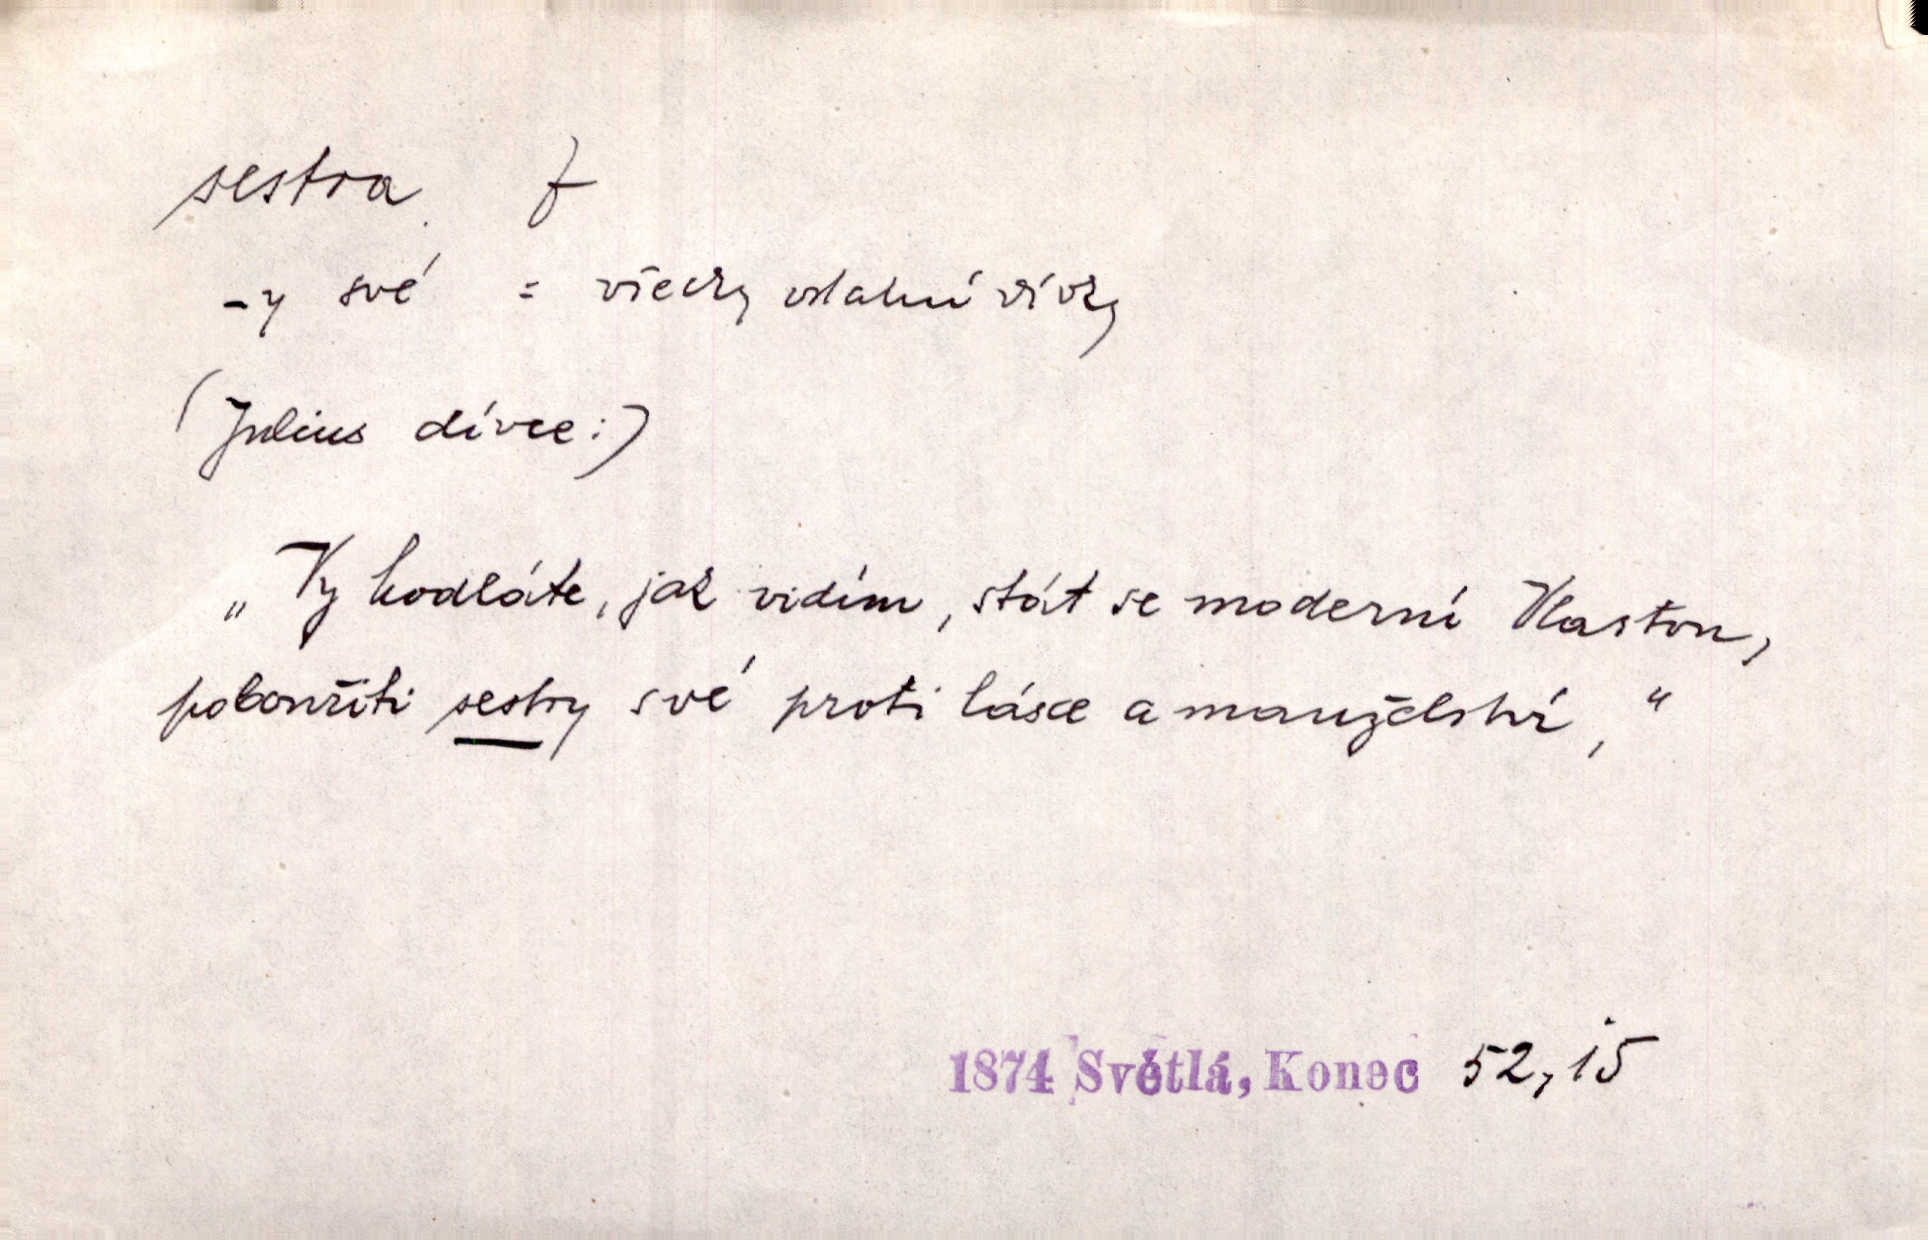 sestra f
-y své = všecky ostatní dívky
(Julius dívce:)
„Vy hodláte, jak vidím, stát se moderní Vlastou,
pobouřiti sestry své proti lásce a manželství,“
1874 Světlá, Konec 52,15